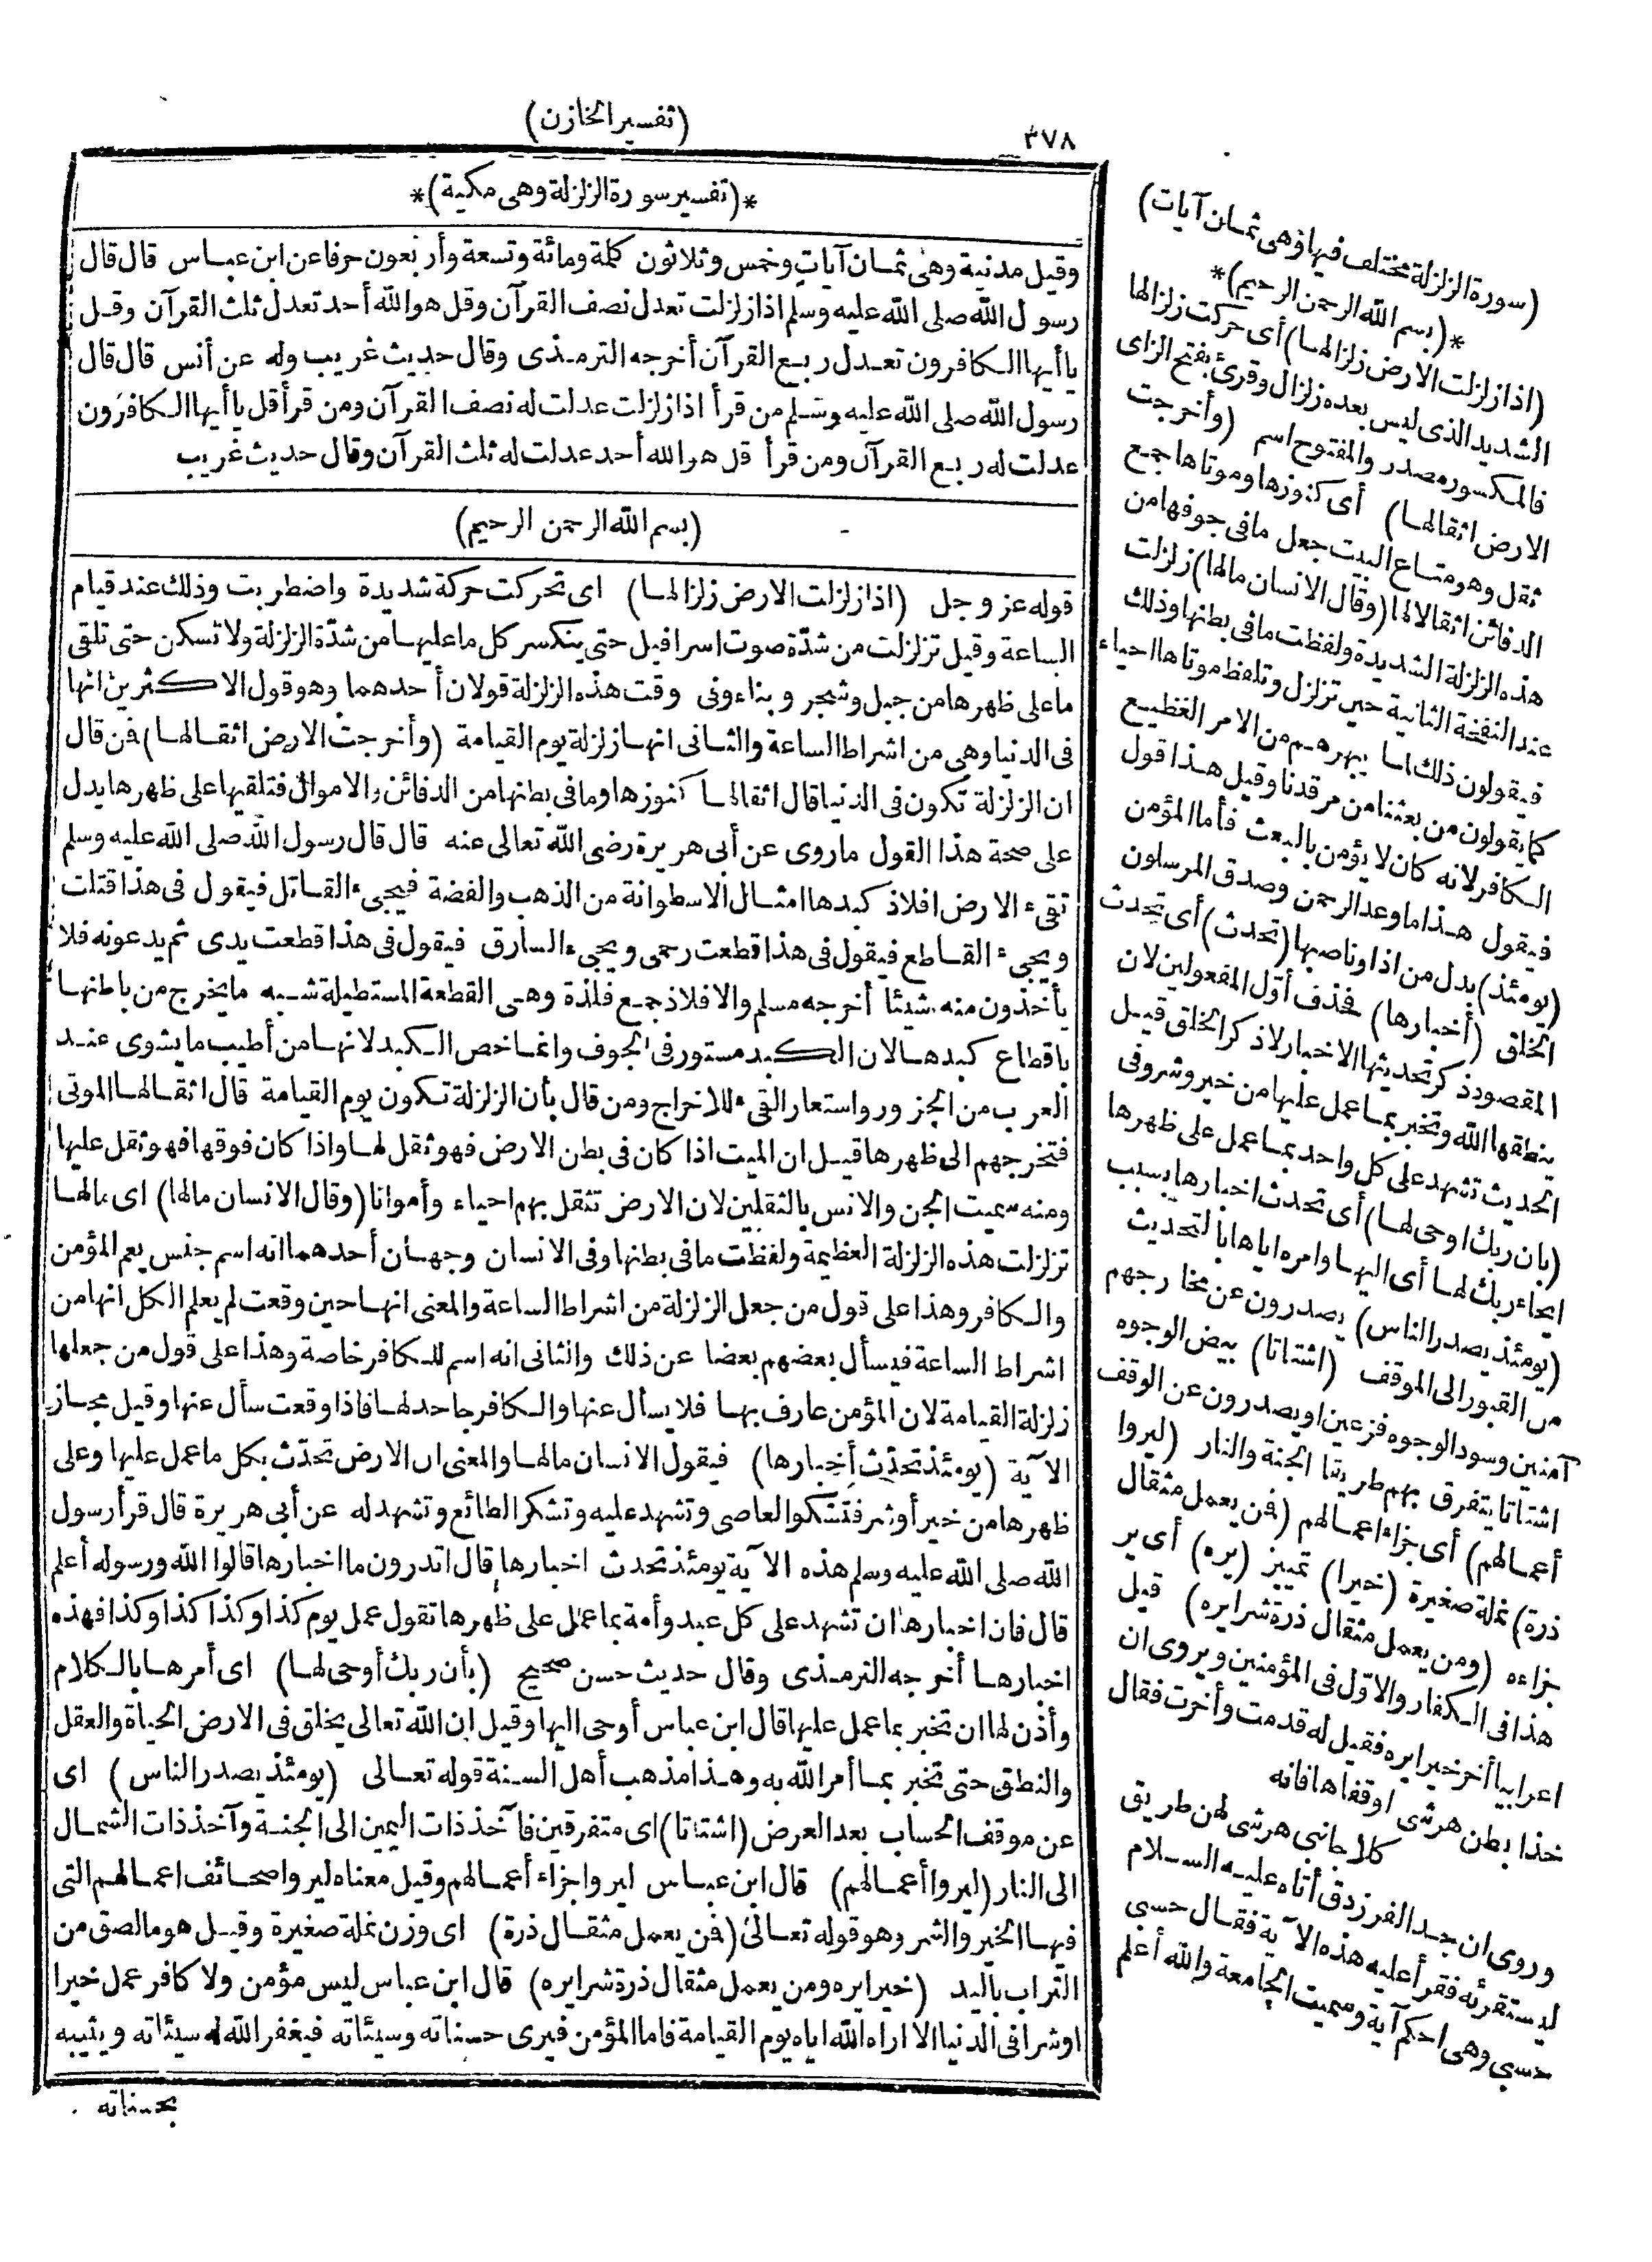 ٣٧٨
(تفسير الخازن)
*(تفسير سورة الزلزلة وهى مكية)*
وقيل مدنية وهى ثمان آيات وخمس وثلاثون كلمة ومائة وتسعة وأربعون حرفا عن ابن عباس قال قال
رسول الله صلى الله عليه وسلم اذا زلزلت تعدل نصف القرآن وقل هو الله أحد تعدل ثلث القرآن وقل
يا أيها الكافرون تعدل ربع القرآن أخرجه الترمذى وقال حديث غريب وله عن أنس قال قال
رسول الله صلى الله عليه وسلم من قرأ اذا زلزلت عدلت له نصف القرآن ومن قرأ قل يا أيها الكافرون
عدلت له ربع القرآن ومن قرأ قل هو الله أحد عدلت له ثلث القرآن وقال حديث غريب
(بسم الله الرحمن الرحيم)
قوله عز وجل (اذا زلزلت الارض زلزالها) اى تحركت حركة شديدة واضطربت وذلك عند قيام
الساعة وقيل تزلزلت من شدّة صوت اسرافيل حتى ينكسر كل ما عليها من شدّة الزلزلة ولا تسكن حتى تلقى
ما على ظهرها من جبل وشجر وبناء وفى وقت هذه الزلزلة قولان أحدهما وهو قول الاكثرين انها
فى الدنيا وهى من اشراط الساعة والثانى انها زلزلة يوم القيامة (وأخرجت الارض اثقالها) فمن قال
ان الزلزلة تكون فى الدنيا قال اثقالها كنوزها وما فى بطنها من الدفائن والاموال فتلقيها على ظهرها يدل
على صحة هذا القول ما روى عن أبى هريرة رضى الله تعالى عنه قال قال رسول الله صلى الله عليه وسلم
تقىء الارض افلاذ كبدها امثال الاسطوانة من الذهب والفضة فيجىء القاتل فيقول فى هذا قتلت
ويجىء القاطع فيقول فى هذا قطعت رحمى ويجىء السارق فيقول فى هذا قطعت يدى ثم يدعونه فلا
يأخذون منه شيئا أخرجه مسلم والافلاذ جمع فلذة وهى القطعة المستطيلة شبه ما يخرج من باطنها
باقطاع كبدها لان الكبد مستور فى الجوف وانما خص الكبد لانها من أطيب ما يشوى عند
العرب من الجزور واستعار القىء للاخراج ومن قال بأن الزلزلة تكون يوم القيامة قال اثقالها الموتى
فتخرجهم الى ظهرها قيل ان الميت اذا كان فى بطن الارض فهو ثقل لها واذا كان فوقها فهو ثقل عليها
ومنه سميت الجن والانس بالثقلين لان الارض تثقل بهم احياء وأمواتا (وقال الانسان مالها) اى مالها
تزلزلت هذه الزلزلة العظيمة ولفظت ما فى بطنها وفى الانسان وجهان أحدهما انه اسم جنس يعم المؤمن
والكافر وهذا على قول من جعل الزلزلة من اشراط الساعة والمعنى انها حين وقعت لم يعلم الكل انها من
اشراط الساعة فيسأل بعضهم بعضا عن ذلك والثانى انه اسم للكافر خاصة وهذا على قول من جعلها
زلزلة القيامة لان المؤمن عارف بها فلا يسأل عنها والكافر جاحد لها فاذا وقعت سأل عنها وقيل مجاز
الآية (يومئذ تحدّث أخبارها) فيقول الانسان مالها والمعنى ان الارض تحدّث بكل ما عمل عليها وعلى
ظهرها من خير أو شر فتشكو العاصى وتشهد عليه وتشكر الطائع وتشهد له عن أبى هريرة قال قرأ رسول
الله صلى الله عليه وسلم هذه الآية يومئذ تحدث اخبارها قال اتدرون ما اخبارها قالوا الله ورسوله أعلم
قال فان اخبارها ان تشهد على كل عبد وأمة بما عمل على ظهرها تقول عمل يوم كذا وكذا كذا وكذا فهذه
اخبارها أخرجه الترمذى وقال حديث حسن صحيح (بأن ربك أوحى لها) اى أمرها بالكلام
وأذن لها ان تخبر بما عمل عليها قال ابن عباس أوحى اليها وقيل ان الله تعالى يخلق فى الارض الحياة والعقل
والنطق حتى تخبر بما أمر الله به وهذا مذهب أهل السنة قوله تعالى (يومئذ يصدر الناس) اى
عن موقف الحساب بعد العرض (اشتاتا) اى متفرقين فآخذ ذات اليمين الى الجنة وآخذ ذات الشمال
الى النار (ليروا أعمالهم) قال ابن عباس ليروا جزاء أعمالهم وقيل معناه ليروا صحائف اعمالهم التى
فيها الخير والشر وهو قوله تعالى (فمن يعمل مثقال ذرة) اى وزن نملة صغيرة وقيل هو ما لصق من
التراب باليد (خيرا يره ومن يعمل مثقال ذرة شرا يره) قال ابن عباس ليس مؤمن ولا كافر عمل خيرا
او شرا فى الدنيا الا اراه الله اياه يوم القيامة فاما المؤمن فيرى حسناته وسيئاته فيغفر الله له سيئاته ويثيبه
بحسناته
(سورة الزلزلة مختلف فيها وهى ثمان آيات)
*(بسم الله الرحمن الرحيم)*
(اذا زلزلت الارض زلزالها) أى حركت زلزالها
الشديد الذى ليس بعده زلزال وقرئ بفتح الزاى
فالمكسور مصدر والمفتوح اسم (وأخرجت
الارض اثقالها) أى كنوزها وموتاها جمع
ثقل وهو متاع البيت جعل ما فى جوفها من
الدفائن اثقالا لها (وقال الانسان مالها) زلزلت
هذه الزلزلة الشديدة ولفظت ما فى بطنها وذلك
عند النفخة الثانية حين تزلزل وتلفظ موتاها احياء
فيقولون ذلك لما يبهرهم من الامر الفظيع
كما يقولون من بعثنا من مرقدنا وقيل هذا قول
الكافر لانه كان لا يؤمن بالبعث فأما المؤمن
فيقول هذا ما وعد الرحمن وصدق المرسلون
(يومئذ) بدل من اذا وناصبها (تحدث) أى تحدث
الخلق (أخبارها) فحذف أوّل المفعولين لان
المقصود ذكر تحديثها الاخبار لا ذكر الخلق قيل
ينطقها الله وتخبر بما عمل عليها من خير وشر وفى
الحديث تشهد على كل واحد بما عمل على ظهرها
(بان ربك اوحى لها) أى تحدث اخبارها بسبب
ايحاء ربك لها أى اليها وامره اياها بالتحديث
(يومئذ يصدر الناس) يصدرون عن مخارجهم
من القبور الى الموقف (اشتاتا) بيض الوجوه
آمنين وسود الوجوه فزعين او يصدرون عن الموقف
اشتاتا يتفرق بهم طريقا الجنة والنار (ليروا
أعمالهم) أى جزاء اعمالهم (فمن يعمل مثقال
ذرة) نملة صغيرة (خيرا) تمييز (يره) أى ير
جزاءه (ومن يعمل مثقال ذرة شرا يره) قيل
هذا فى الكفار والاوّل فى المؤمنين ويروى ان
اعرابيا أخر خيرا يره فقيل له قدمت وأخرت فقال
خذا بطن هرشى او قفاها فانه
كلا جانبى هرشى لهن طريق
وروى ان جد الفرزدق أتاه عليه السلام
ليستقرئه فقرأ عليه هذه الآية فقال حسبى
حسبى وهى احكم آية وسميت الجامعة والله أعلم